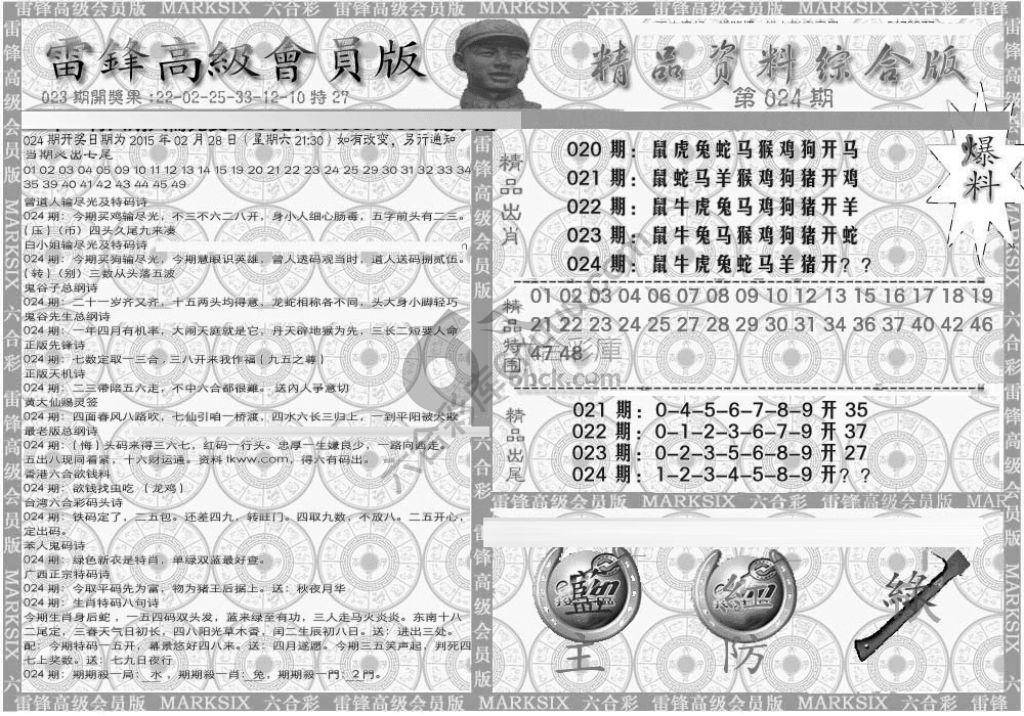 雷锋高级会员版 MARKSIX 六合彩 雷锋高级会员版 MARKSIX 六合彩 雷锋高级会员版 MARKSIX 六合彩 雷锋
雷鋒高級會員版
023 期開獎果:22-02-25-33-12-10 特 27
精品资料综合版
第 024 期
爆料
024 期开奖日期为 2015 年 02 月 28 日（星期六 21:30）如有改变，另行通知
当期人出七尾
01 02 03 04 05 09 10 11 12 13 14 15 19 20 21 22 23 24 25 29 30 31 32 33 34
35 39 40 41 42 43 44 45 49
曾道人输尽光及特码诗
024 期：今期买鸡输尽光，不三不六二八开，身小人细心肠毒，五字前头有二三。
{压}{币}四头久尾九来凑
白小姐输尽光及特码诗
024 期：今期买狗输尽光，今期慧眼识英雄，曾人送码观当时，道人送码捌贰伍。
{转}{别}三数从头落五波
鬼谷子总纲诗
024 期：二十一岁齐又齐，十五两头均得意，龙蛇相称各不同，头大身小脚轻巧
鬼谷先生总纲诗
024 期：一年四月有机率，大闹天庭就是它，丹天辟地猴为先，三长二短要人命
正版先锋诗
024 期：七数定取一三合，三八开来我作福{九五之尊}
正版天机诗
024 期：二三带陪五六走，不中六合都很難。送内人予意切
黄大仙赐灵签
024 期：四面春风八路吹，七仙引咱一桥渡，四水六长三归上，一到平阳被犬欺
最老版总纲诗
024 期：{悔}头码来得三六七，红码一行头。忠厚一生嫌良少，一路向逃走。
五出八现同着紧，十六财运通。资料 tkww.com，得六有码出。
香港六合欲钱料
024 期：欲钱找虫吃 {龙鸡}
台湾六合彩码头诗
024 期：铁码定了，三五包。还差四九，转旺门。四取九数，不放八。二五开心，
定出码。
本人鬼码诗
024 期：绿色新衣是特肖，单绿双蓝最好查。
广西正宗特码诗
024 期：今取平码先为富，物为猪王后据上。送：秋夜月华
024 期：生肖特码八句诗
今期生肖身后蛇，一五四码双头发，蓝来绿至有功，三人走马火炎炎。东南十八
二尾定，三春天气日初长，四八阳光草木香，闰二生辰初八日。送：进出三处。
配：今期特码一五开，幕景悠好四八来。送：四月遂愿。今期三五笑声起，判死四
七上奖数。送：七九日夜行
024 期：期期殺一局：水，期期殺一肖：兔，期期殺一門：2 門。
精品出肖
020 期：鼠虎兔蛇马猴鸡狗开马
021 期：鼠蛇马羊猴鸡狗猪开鸡
022 期：鼠牛虎兔马鸡狗猪开羊
023 期：鼠牛兔马猴鸡狗猪开蛇
024 期：鼠牛虎兔蛇马羊猪开？？
精品特围
01 02 03 04 06 07 08 09 10 12 13 15 16 17 18 19
21 22 23 24 25 27 28 29 30 31 34 36 37 40 42 46
47 48
精品出尾
021 期：0-4-5-6-7-8-9 开 35
022 期：0-1-2-3-6-7-9 开 37
023 期：0-2-3-5-6-8-9 开 27
024 期：1-2-3-4-5-8-9 开？？
雷锋高级会员版 MARKSIX 六合彩 雷锋高级会员版
藍
主
防
綠
雷锋高级会员版 MARKSIX 六合彩 雷锋高级会员版 MARKSIX 六合彩 雷锋高级会员版 MARKSIX 六合彩 雷锋